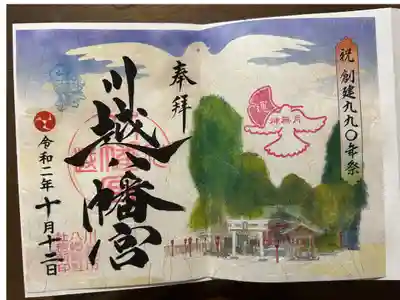 祝 創建九九〇年祭
奉拝
川越八幡宮
令和二年十月十二日
神無月